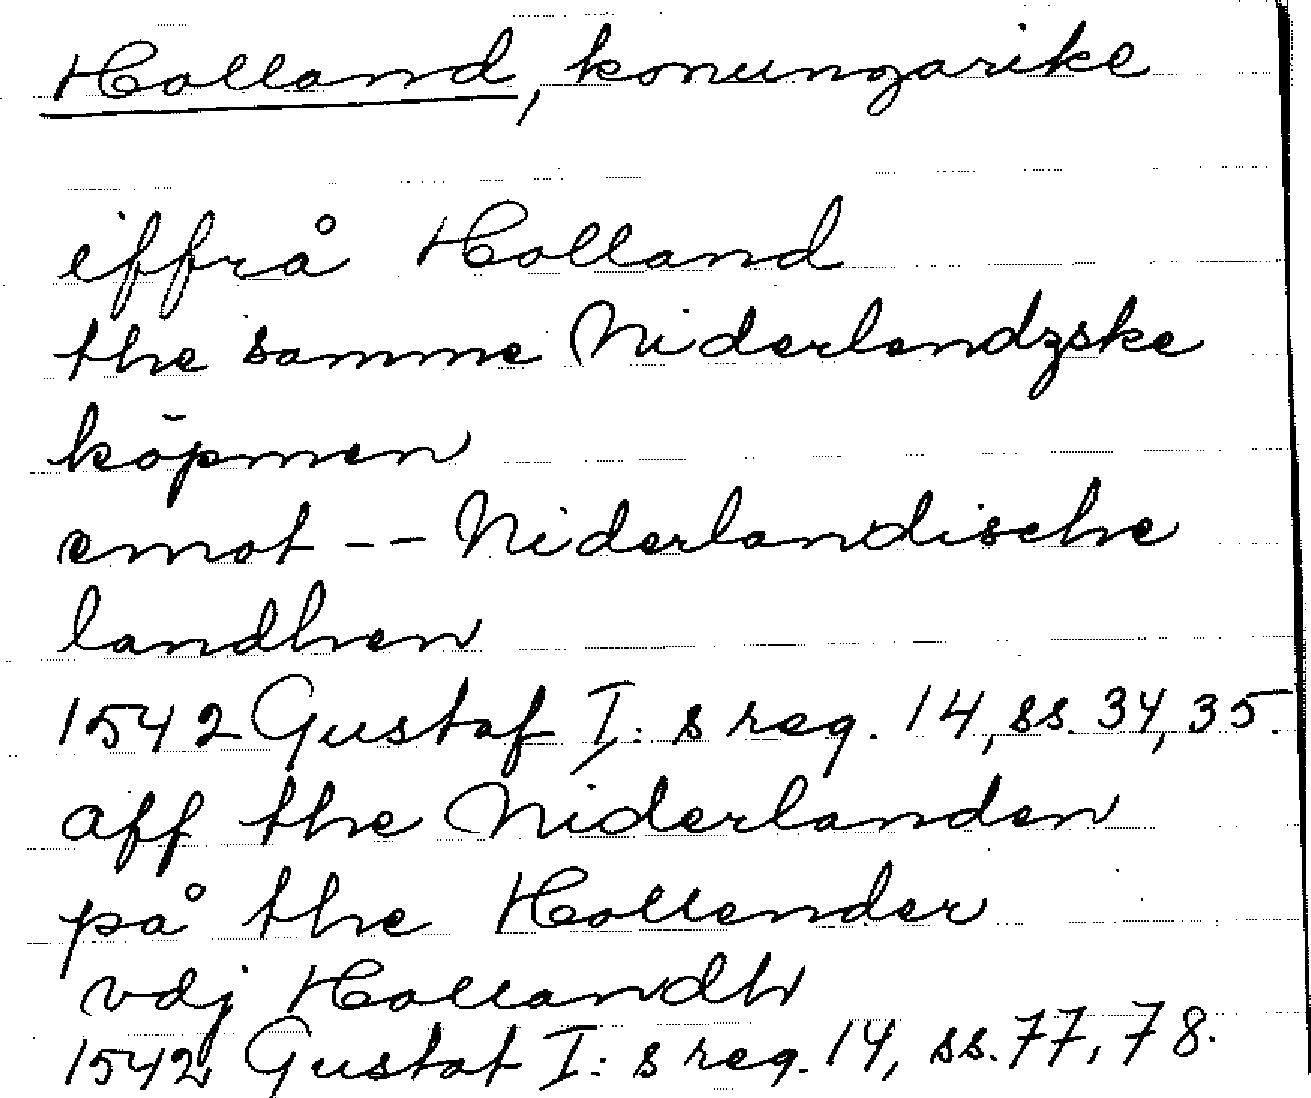 Holland, konungarike
iffrå Holland
the samme Niderlendzske
köpmen
emot -- Niderlandische
landhen
1542 Gustaf I:s reg. 14, ss. 34, 35.
aff the Niderlanden
på the Hollender
vdj Hollandh
1542 Gustaf I:s reg. 14, ss. 77, 78.